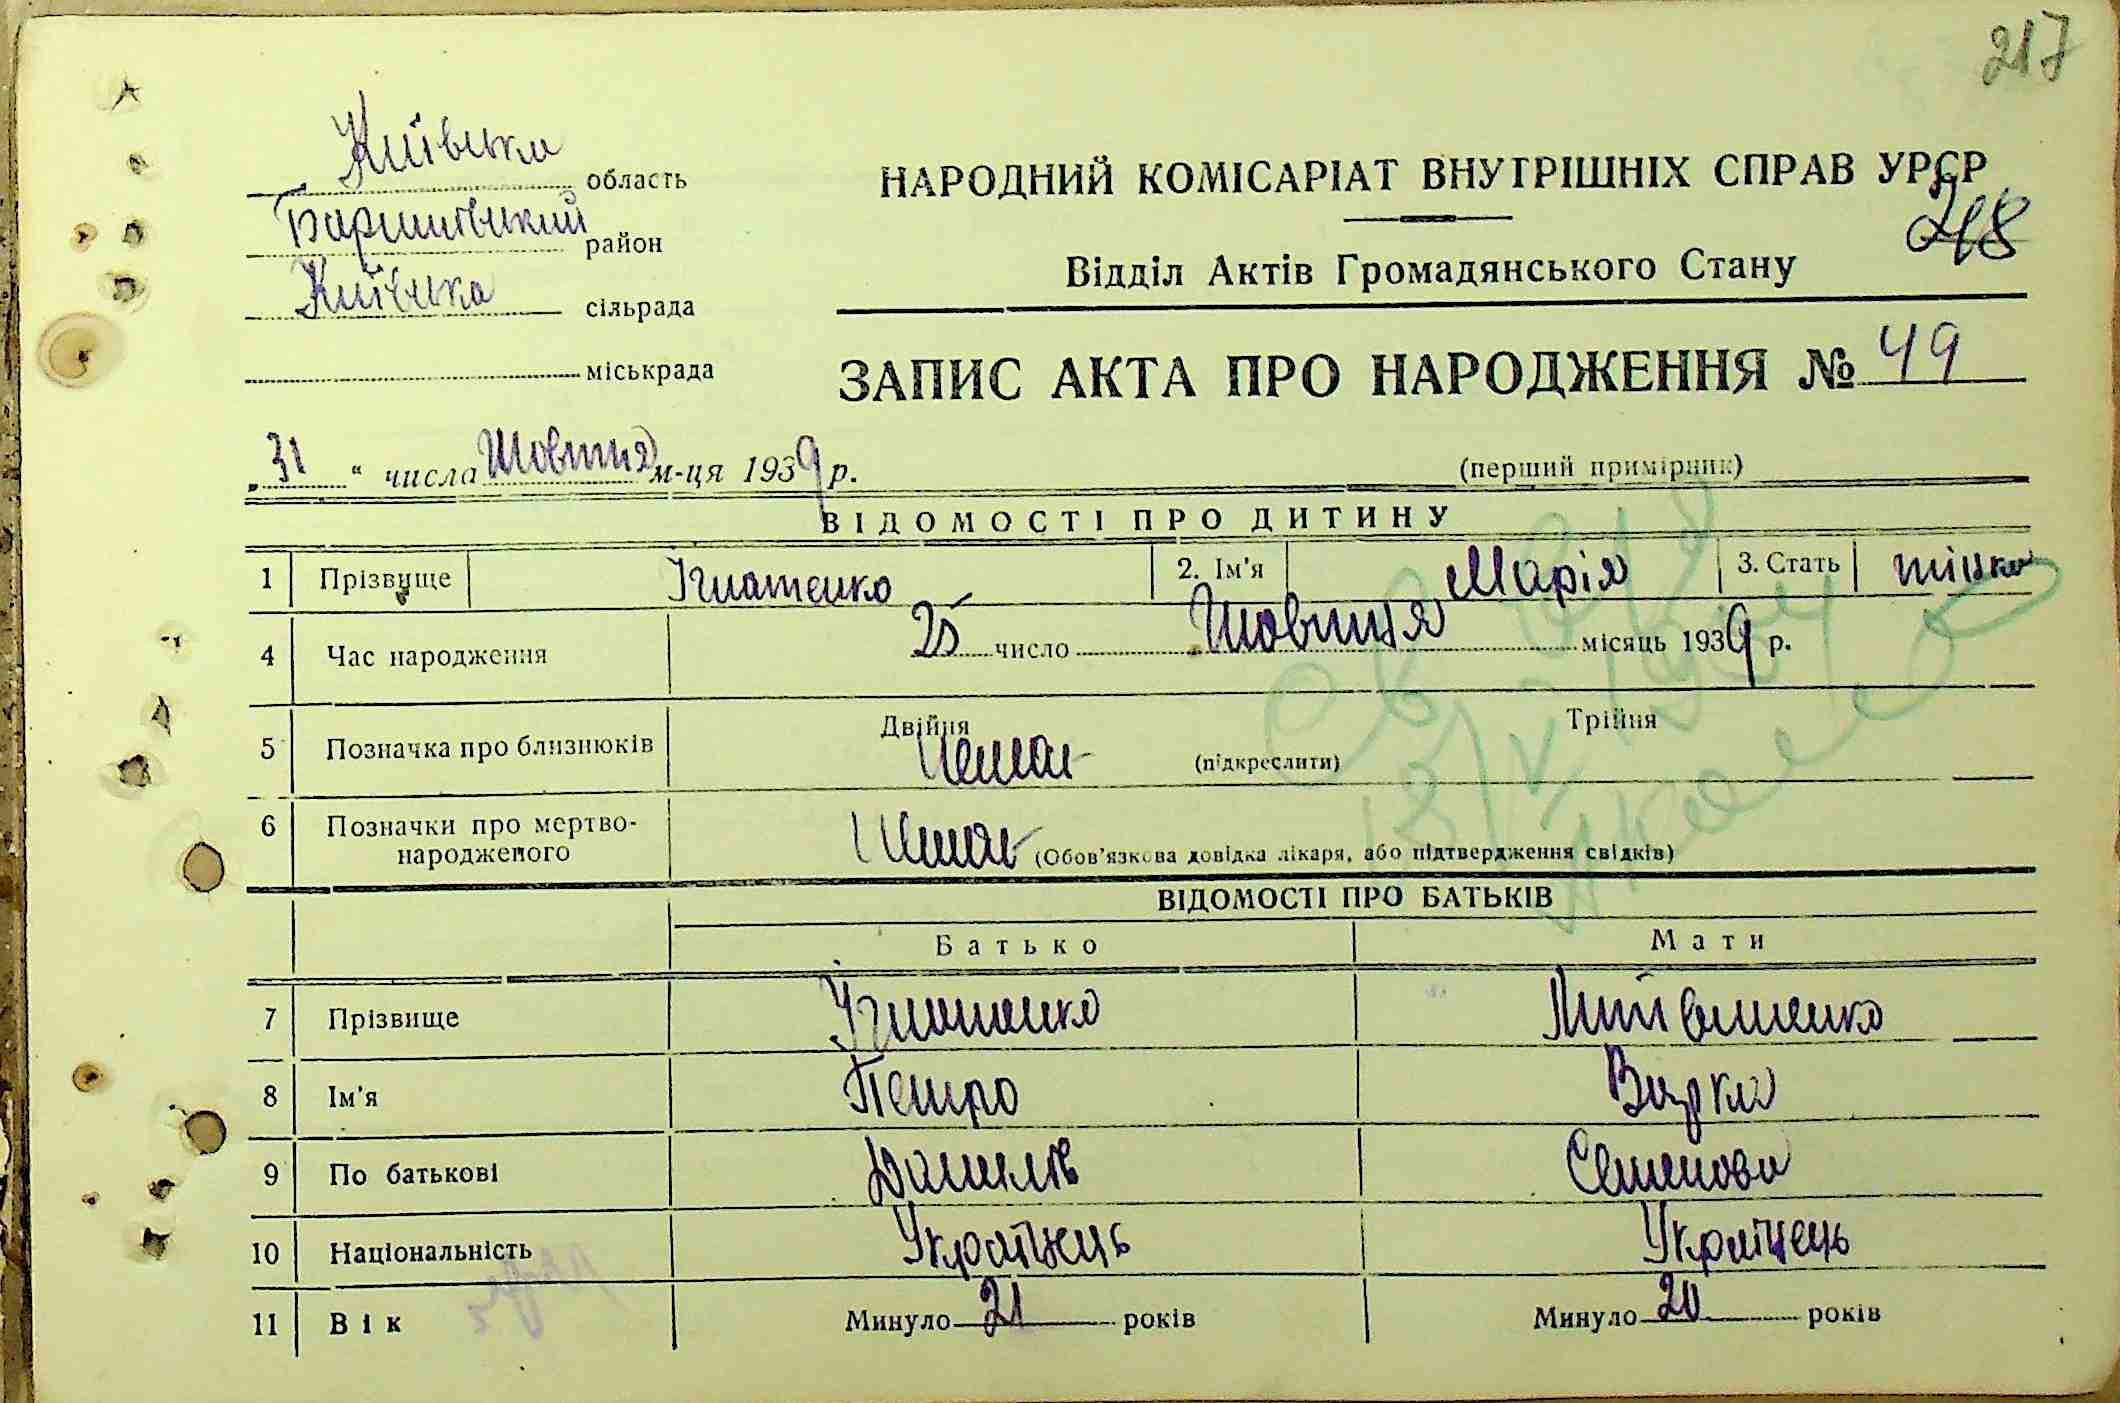 217
Київська область
Баришівський район
Київська сільрада
міськрада
НАРОДНИЙ КОМІСАРІАТ ВНУТРІШНІХ СПРАВ УРСР
218
Відділ Актів Громадянського Стану
ЗАПИС АКТА ПРО НАРОДЖЕННЯ № 49
„31“ числа Жовтня м-ця 1939 р.
(перший примірник)
ВІДОМОСТІ ПРО ДИТИНУ
1 Прізвище Ігнатенко 2. Ім'я Марія 3. Стать жінка
4 Час народження 25 число Жовтня місяць 1939 р.
5 Позначка про близнюків Двійня Трійня
немає (підкреслити)
6 Позначки про мертво-
народженого немає (Обов'язкова довідка лікаря, або підтвердження свідків)
ВІДОМОСТІ ПРО БАТЬКІВ
Батько Мати
7 Прізвище Ігнатенко Литвиненко
8 Ім'я Петро Варка
9 По батькові Данилів Семенова
10 Національність Українець Українець
11 Вік Минуло 21 років Минуло 20 років